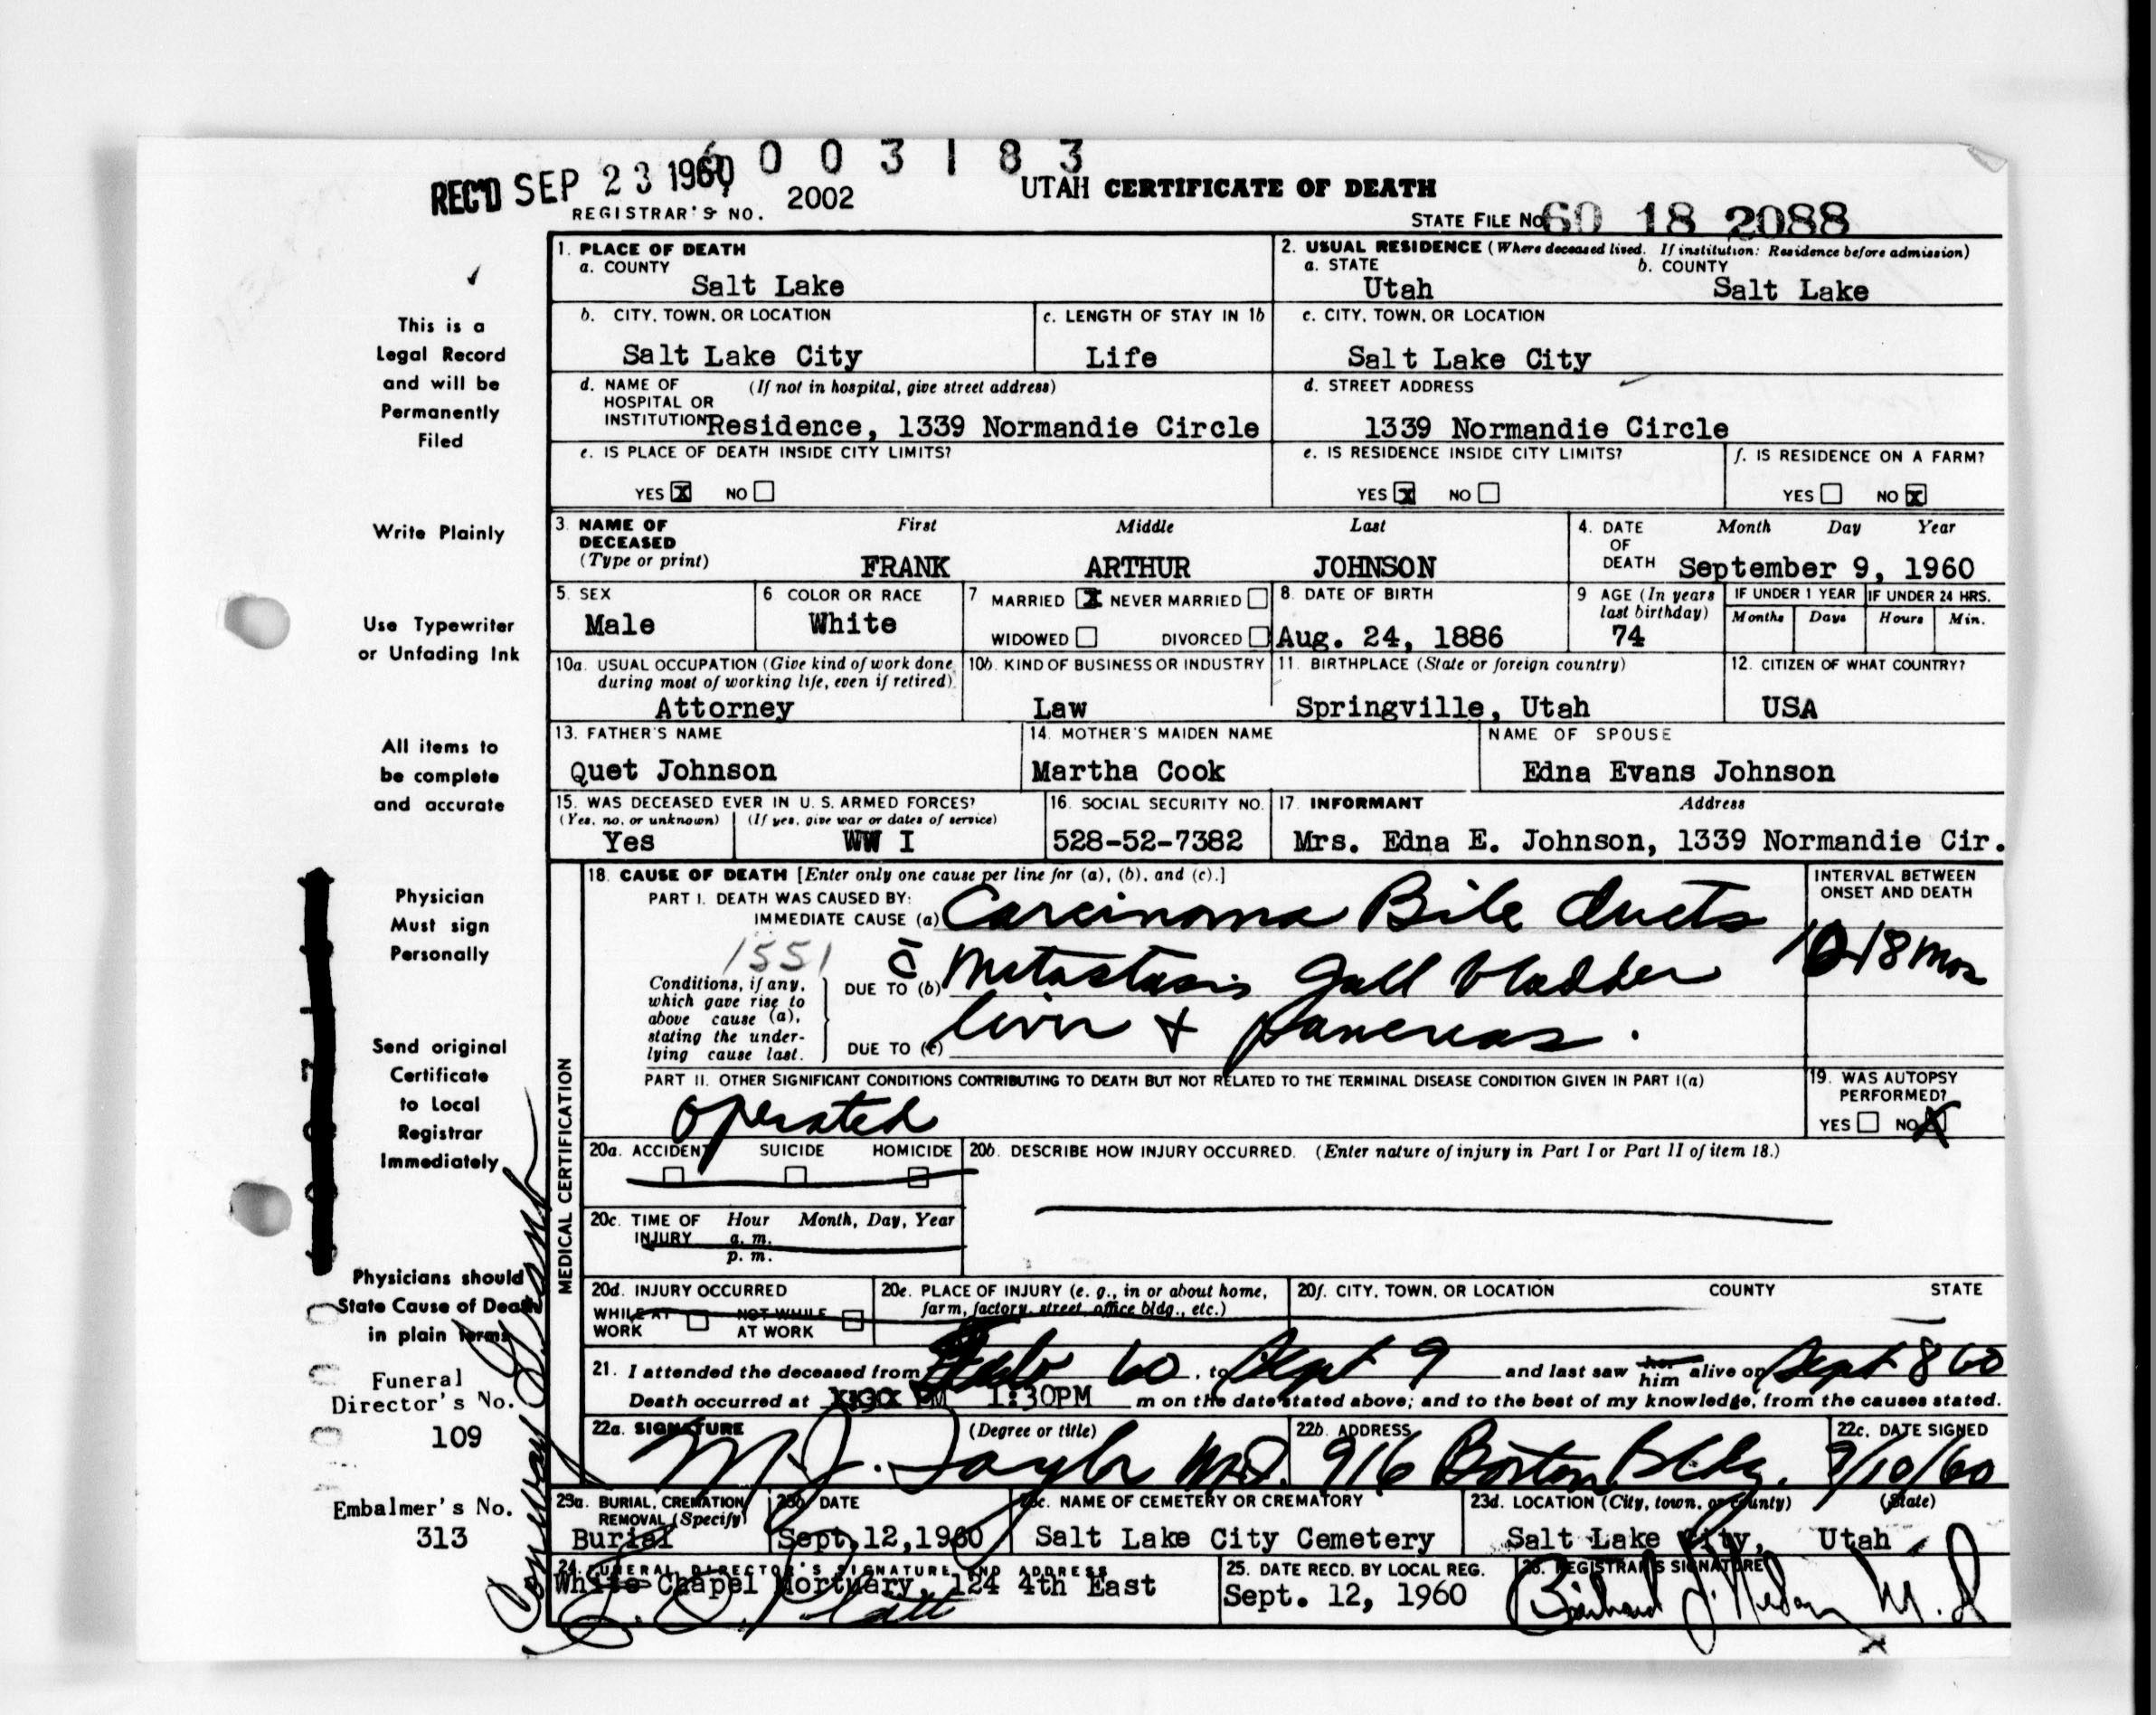 6 0 0 3 1 8 3
REC'D SEP 23 1960
REGISTRAR'S NO. 2002
UTAH CERTIFICATE OF DEATH
STATE FILE NO 60 18 2088
This is a
Legal Record
and will be
Permanently
Filed
Write Plainly
Use Typewriter
or Unfading Ink
All items to
be complete
and accurate
Physician
Must sign
Personally
Send original
Certificate
to Local
Registrar
Immediately
Physicians should
State Cause of Death
in plain terms
Funeral
Director's No.
109
Embalmer's No.
313
1. PLACE OF DEATH
a. COUNTY
Salt Lake
2. USUAL RESIDENCE (Where deceased lived. If institution: Residence before admission)
a. STATE b. COUNTY
Utah Salt Lake
b. CITY, TOWN, OR LOCATION
Salt Lake City
c. LENGTH OF STAY IN 1b
Life
c. CITY, TOWN, OR LOCATION
Salt Lake City
d. NAME OF (If not in hospital, give street address)
HOSPITAL OR
INSTITUTION Residence, 1339 Normandie Circle
d. STREET ADDRESS
1339 Normandie Circle
e. IS PLACE OF DEATH INSIDE CITY LIMITS?
YES X NO
e. IS RESIDENCE INSIDE CITY LIMITS?
YES X NO
f. IS RESIDENCE ON A FARM?
YES NO X
3. NAME OF DECEASED (Type or print)
First Middle Last
FRANK ARTHUR JOHNSON
4. DATE OF DEATH Month Day Year
September 9, 1960
5. SEX
Male
6 COLOR OR RACE
White
7 MARRIED X NEVER MARRIED
WIDOWED DIVORCED
8. DATE OF BIRTH
Aug. 24, 1886
9 AGE (In years last birthday)
74
IF UNDER 1 YEAR IF UNDER 24 HRS.
Months Days Hours Min.
10a. USUAL OCCUPATION (Give kind of work done during most of working life, even if retired)
Attorney
10b. KIND OF BUSINESS OR INDUSTRY
Law
11. BIRTHPLACE (State or foreign country)
Springville, Utah
12. CITIZEN OF WHAT COUNTRY?
USA
13. FATHER'S NAME
Quet Johnson
14. MOTHER'S MAIDEN NAME
Martha Cook
NAME OF SPOUSE
Edna Evans Johnson
15. WAS DECEASED EVER IN U. S. ARMED FORCES?
(Yes, no, or unknown) (If yes, give war or dates of service)
Yes WW I
16. SOCIAL SECURITY NO.
528-52-7382
17. INFORMANT Address
Mrs. Edna E. Johnson, 1339 Normandie Cir.
MEDICAL CERTIFICATION
18. CAUSE OF DEATH [Enter only one cause per line for (a), (b), and (c).]
PART I. DEATH WAS CAUSED BY:
IMMEDIATE CAUSE (a) Carcinoma Bile ducts
1551
Conditions, if any, which gave rise to above cause (a), stating the underlying cause last.
DUE TO (b) c̄ Metastasis Gall bladder
DUE TO (c) liver + pancreas.
INTERVAL BETWEEN
ONSET AND DEATH
18 mos
PART II. OTHER SIGNIFICANT CONDITIONS CONTRIBUTING TO DEATH BUT NOT RELATED TO THE TERMINAL DISEASE CONDITION GIVEN IN PART I(a)
operated
19. WAS AUTOPSY
PERFORMED?
YES NO X
20a. ACCIDENT SUICIDE HOMICIDE
20b. DESCRIBE HOW INJURY OCCURRED. (Enter nature of injury in Part I or Part II of item 18.)
20c. TIME OF INJURY Hour Month, Day, Year
a. m.
p. m.
20d. INJURY OCCURRED
WHILE AT WORK NOT WHILE AT WORK
20e. PLACE OF INJURY (e. g., in or about home, farm, factory, street, office bldg., etc.)
20f. CITY, TOWN, OR LOCATION COUNTY STATE
21. I attended the deceased from Feb 60, to Sept 9 and last saw her him alive on Sept 8 60
Death occurred at 1:30PM m on the date stated above; and to the best of my knowledge, from the causes stated.
22a. SIGNATURE (Degree or title)
M. J. Taylor M.D.
22b. ADDRESS
916 Boston Bldg.
22c. DATE SIGNED
9/10/60
23a. BURIAL, CREMATION REMOVAL (Specify)
Burial
23b. DATE
Sept. 12, 1960
23c. NAME OF CEMETERY OR CREMATORY
Salt Lake City Cemetery
23d. LOCATION (City, town, or county) (State)
Salt Lake City, Utah
24. FUNERAL DIRECTOR'S SIGNATURE AND ADDRESS
White Chapel Mortuary, 124 4th East
25. DATE RECD. BY LOCAL REG.
Sept. 12, 1960
26. REGISTRAR'S SIGNATURE